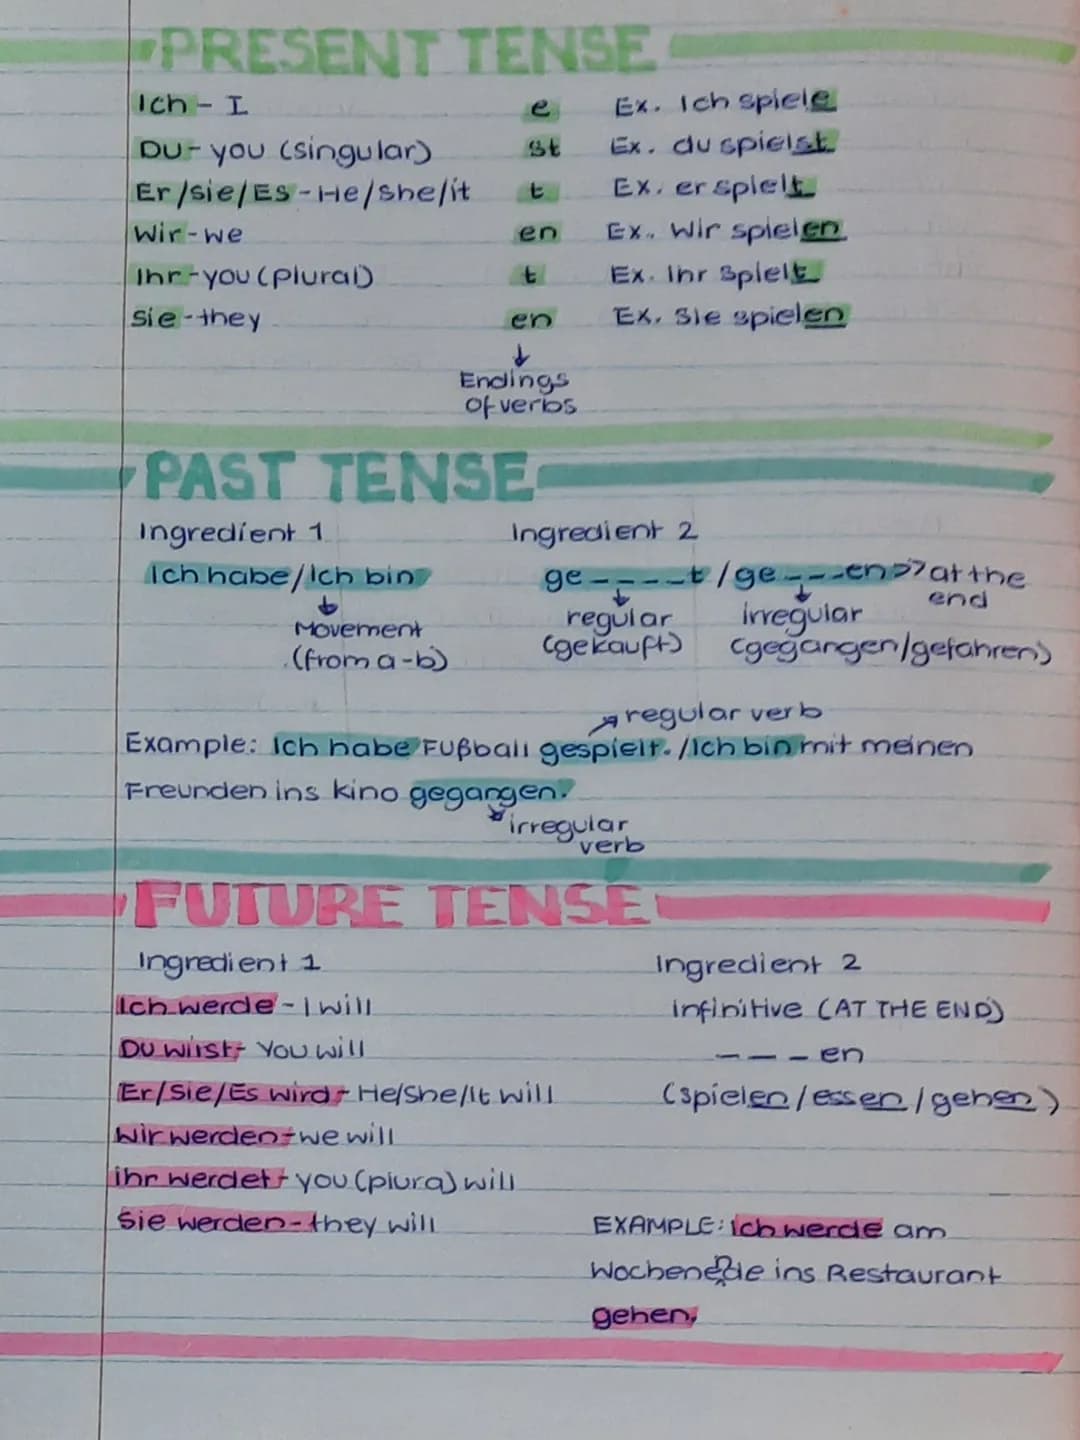 PRESENT TENSE
Ich - I e Ex. Ich spiele
Du - you (singular) st Ex. du spielst
Er/sie/Es - He/she/it t Ex. er spielt
Wir - we en Ex. Wir spielen
Ihr - you (plural) t Ex. Ihr spielt
sie - they en Ex. Sie spielen
Endings
of verbs
PAST TENSE
Ingredient 1 Ingredient 2
Ich habe/Ich bin ge----t/ge---en >> at the
end
Movement regular irregular
(from a-b) (gekauft) (gegangen/gefahren)
regular verb
Example: Ich habe Fußball gespielt. /Ich bin mit meinen
Freunden ins kino gegangen.
irregular
verb
FUTURE TENSE
Ingredient 1 Ingredient 2
Ich werde - I will infinitive (AT THE END)
Du wirst - You will ---en
Er/Sie/Es wird - He/She/It will (spielen/essen/gehen)
Wir werden - we will
ihr werdet - you (plural) will
Sie werden - they will EXAMPLE: ich werde am
Wochenende ins Restaurant
gehen.